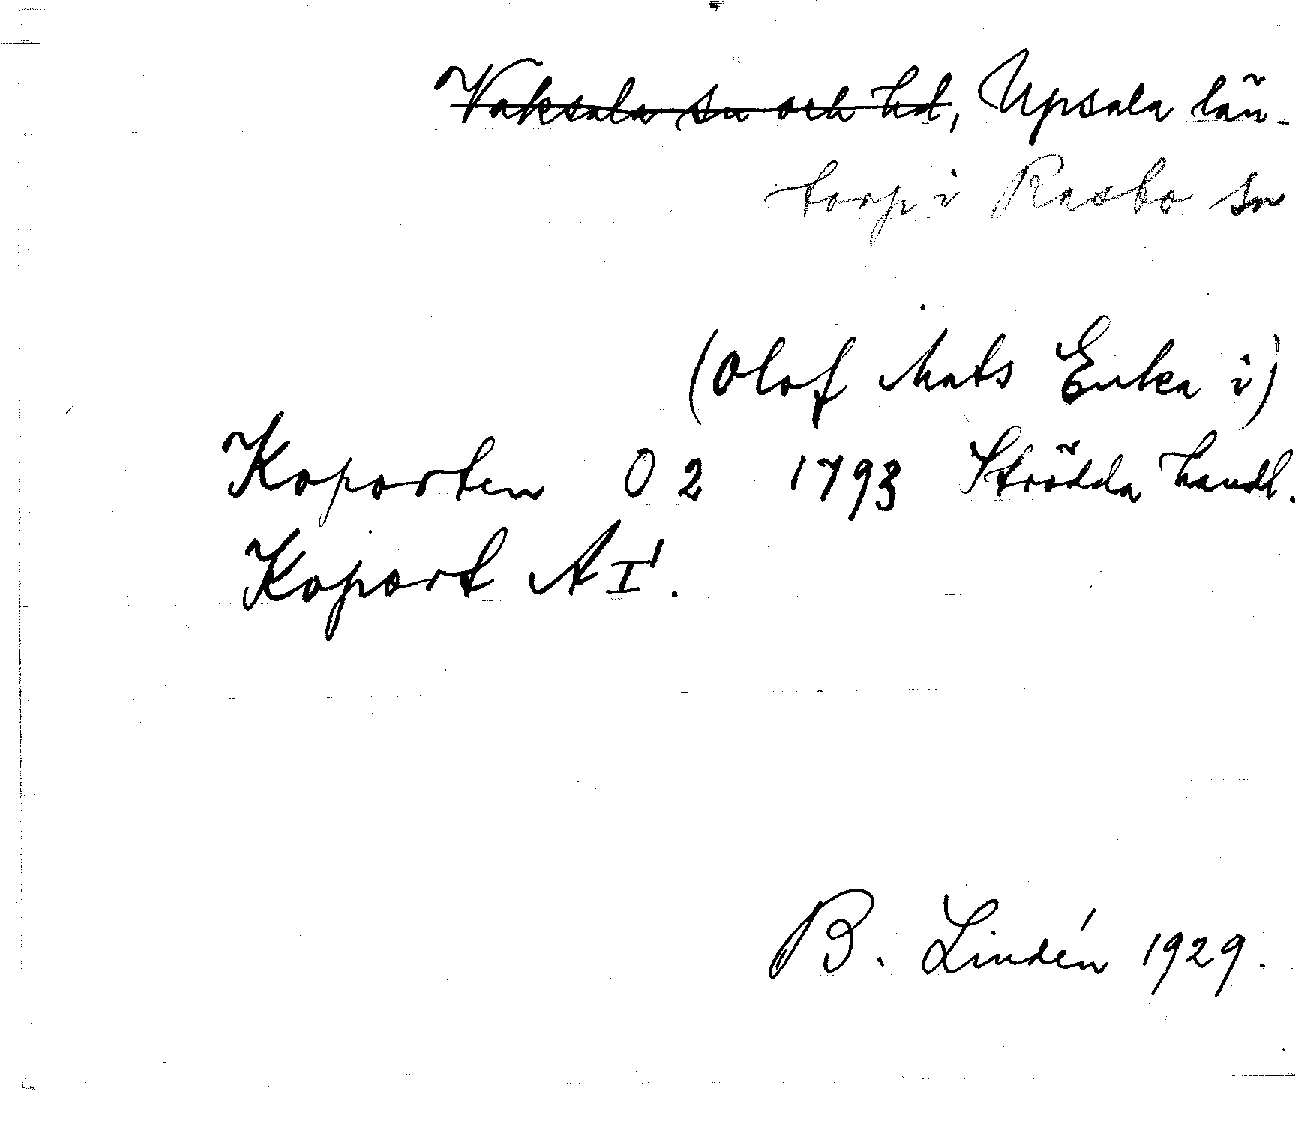 Vaksala sn och hd, Upsala län.
torp i Rasbo sn
(Olof Mats Enka i)
Koporten O 2 1793 Strödda handl.
Koport A I¹.
B. Lindén 1929.